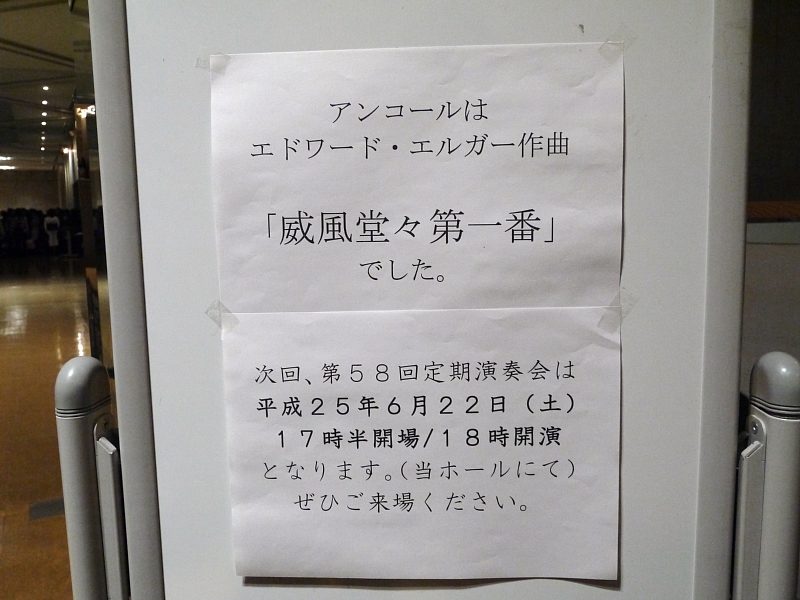 アンコールは
エドワード・エルガー作曲
「威風堂々第一番」
でした。
次回、第５８回定期演奏会は
平成２５年６月２２日（土）
１７時半開場/１８時開演
となります。（当ホールにて）
ぜひご来場ください。